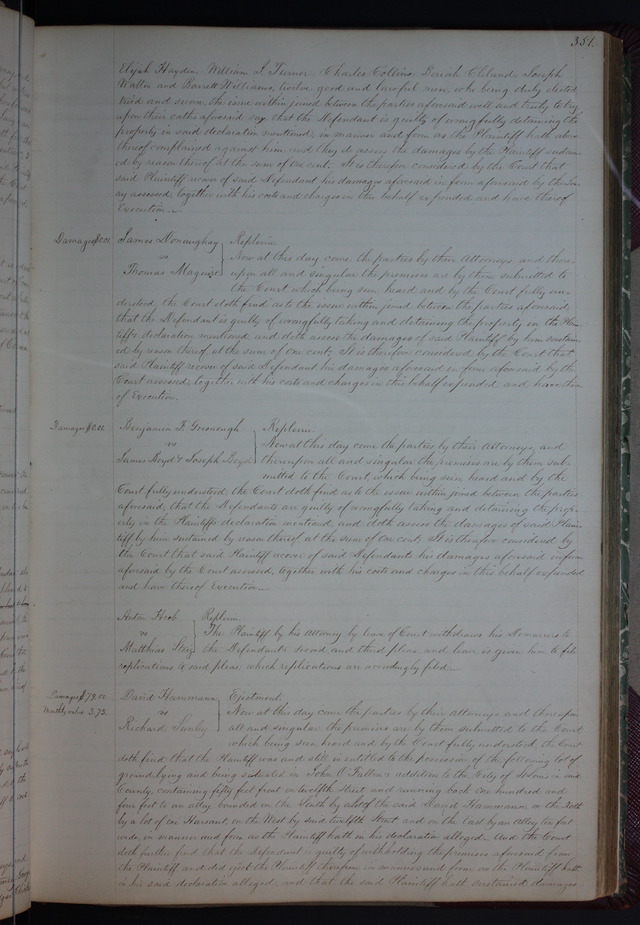 351.
Elijah Hayden, William S. Turner, Charles Collins, Beriah Cleland, Joseph
Wallin and Barrett Williams, twelve good and lawful men, who being duly elected
tried and sworn, the issue within joined between the parties aforesaid well and truly to try
upon their oaths aforesaid say that the Defendant is guilty of wrongfully detaining the
property in said declaration mentioned, in manner and form as the Plaintiff hath above
thereof complained against him and they do assess the damages by the Plaintiff sustain-
ed by reason thereof at the sum of one cent. It is therefore considered by the Court that
said Plaintiff recover of said Defendant his damages aforesaid in form aforesaid by the Ju-
ry assessed, together with his costs and charges in this behalf expended and have thereof
Execution.
Damages $0.01. James Donaughay } Replevin
vs Now at this day come the parties by their Attorneys and there-
Thomas Maguire upon all and singular the premises are by them submitted to
the Court which being seen heard and by the Court fully un-
derstood, the Court doth find as to the issue within joined between the parties aforesaid,
that the Defendant is guilty of wrongfully taking and detaining the property in the Plain-
tiffs declaration mentioned and doth assess the damages of said Plaintiff by him sustain-
ed by reason thereof at the sum of one cent. It is therefore considered by the Court that
said Plaintiff recover of said Defendant his damages aforesaid in form aforesaid by the
Court assessed, together with his costs and charges in this behalf expended and have there-
of Execution.
Damages $0.01. Benjamin F. Greenough } Replevin
vs Now at this day come the parties by their Attorneys, and
James Boyd & Joseph Boyd thereupon all and singular the premises are by them sub-
mitted to the Court, which being seen, heard and by the
Court fully understood, the Court doth find as to the issue within joined between the parties
aforesaid, that the Defendants are guilty of wrongfully taking and detaining the prop-
erty in the Plaintiffs declaration mentioned, and doth assess the damages of said Plain-
tiff by him sustained by reason thereof at the sum of one cent. It is therefore considered by
the Court that said Plaintiff recover of said Defendants his damages aforesaid in form
aforesaid by the Court assessed, together with his costs and charges in this behalf expended
and have thereof Execution.
Anton } Replevin
vs The Plaintiff by his Attorney by leave of Court withdraws his Demurrers to
Matthias the Defendants second and third pleas and leave is given him to file
replications to said pleas, which replications are accordingly filed.
Damages $79.00 David Hammann } Ejectment
Monthly value 3.75. vs Now at this day come the parties by their attorneys and thereupon
Richard all and singular the premises are by them submitted to the Court
which being seen heard and by the Court fully understood the Court
doth find that the Plaintiff was and still is entitled to the possession of the following lot of
ground lying and being situated in John O'Fallon's addition to the City of St Louis in said
County, containing fifty feet front on twelfth Street and running back one hundred and
four feet to an alley bounded on the South by a lot of the said David Hammann on the North
by a lot of on the West by said twelfth Street and on the East by an Alley ten feet
wide, in manner and form as the Plaintiff hath in his declaration alleged. And the Court
doth further find that the Defendant is guilty of withholding the premises aforesaid from
the Plaintiff and did eject the Plaintiff therefrom in manner and form as the Plaintiff hath
in his said declaration alleged, and that the said Plaintiff hath sustained damages